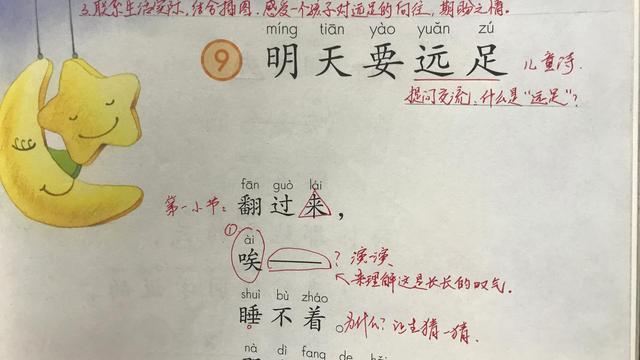 3.联系生活实际,结合插图,感受一个孩子对远足的向往,期盼之情。
míng tiān yào yuǎn zú
9 明天要远足 儿童诗.
提问交流,什么是“远足”?
fān guò lái
第一小节: 翻过来,
①
ài
唉——? 演演
来理解这是长长的叹气。
shuì bù zháo
睡不着。为什么?让生猜一猜.
nà dì fang de